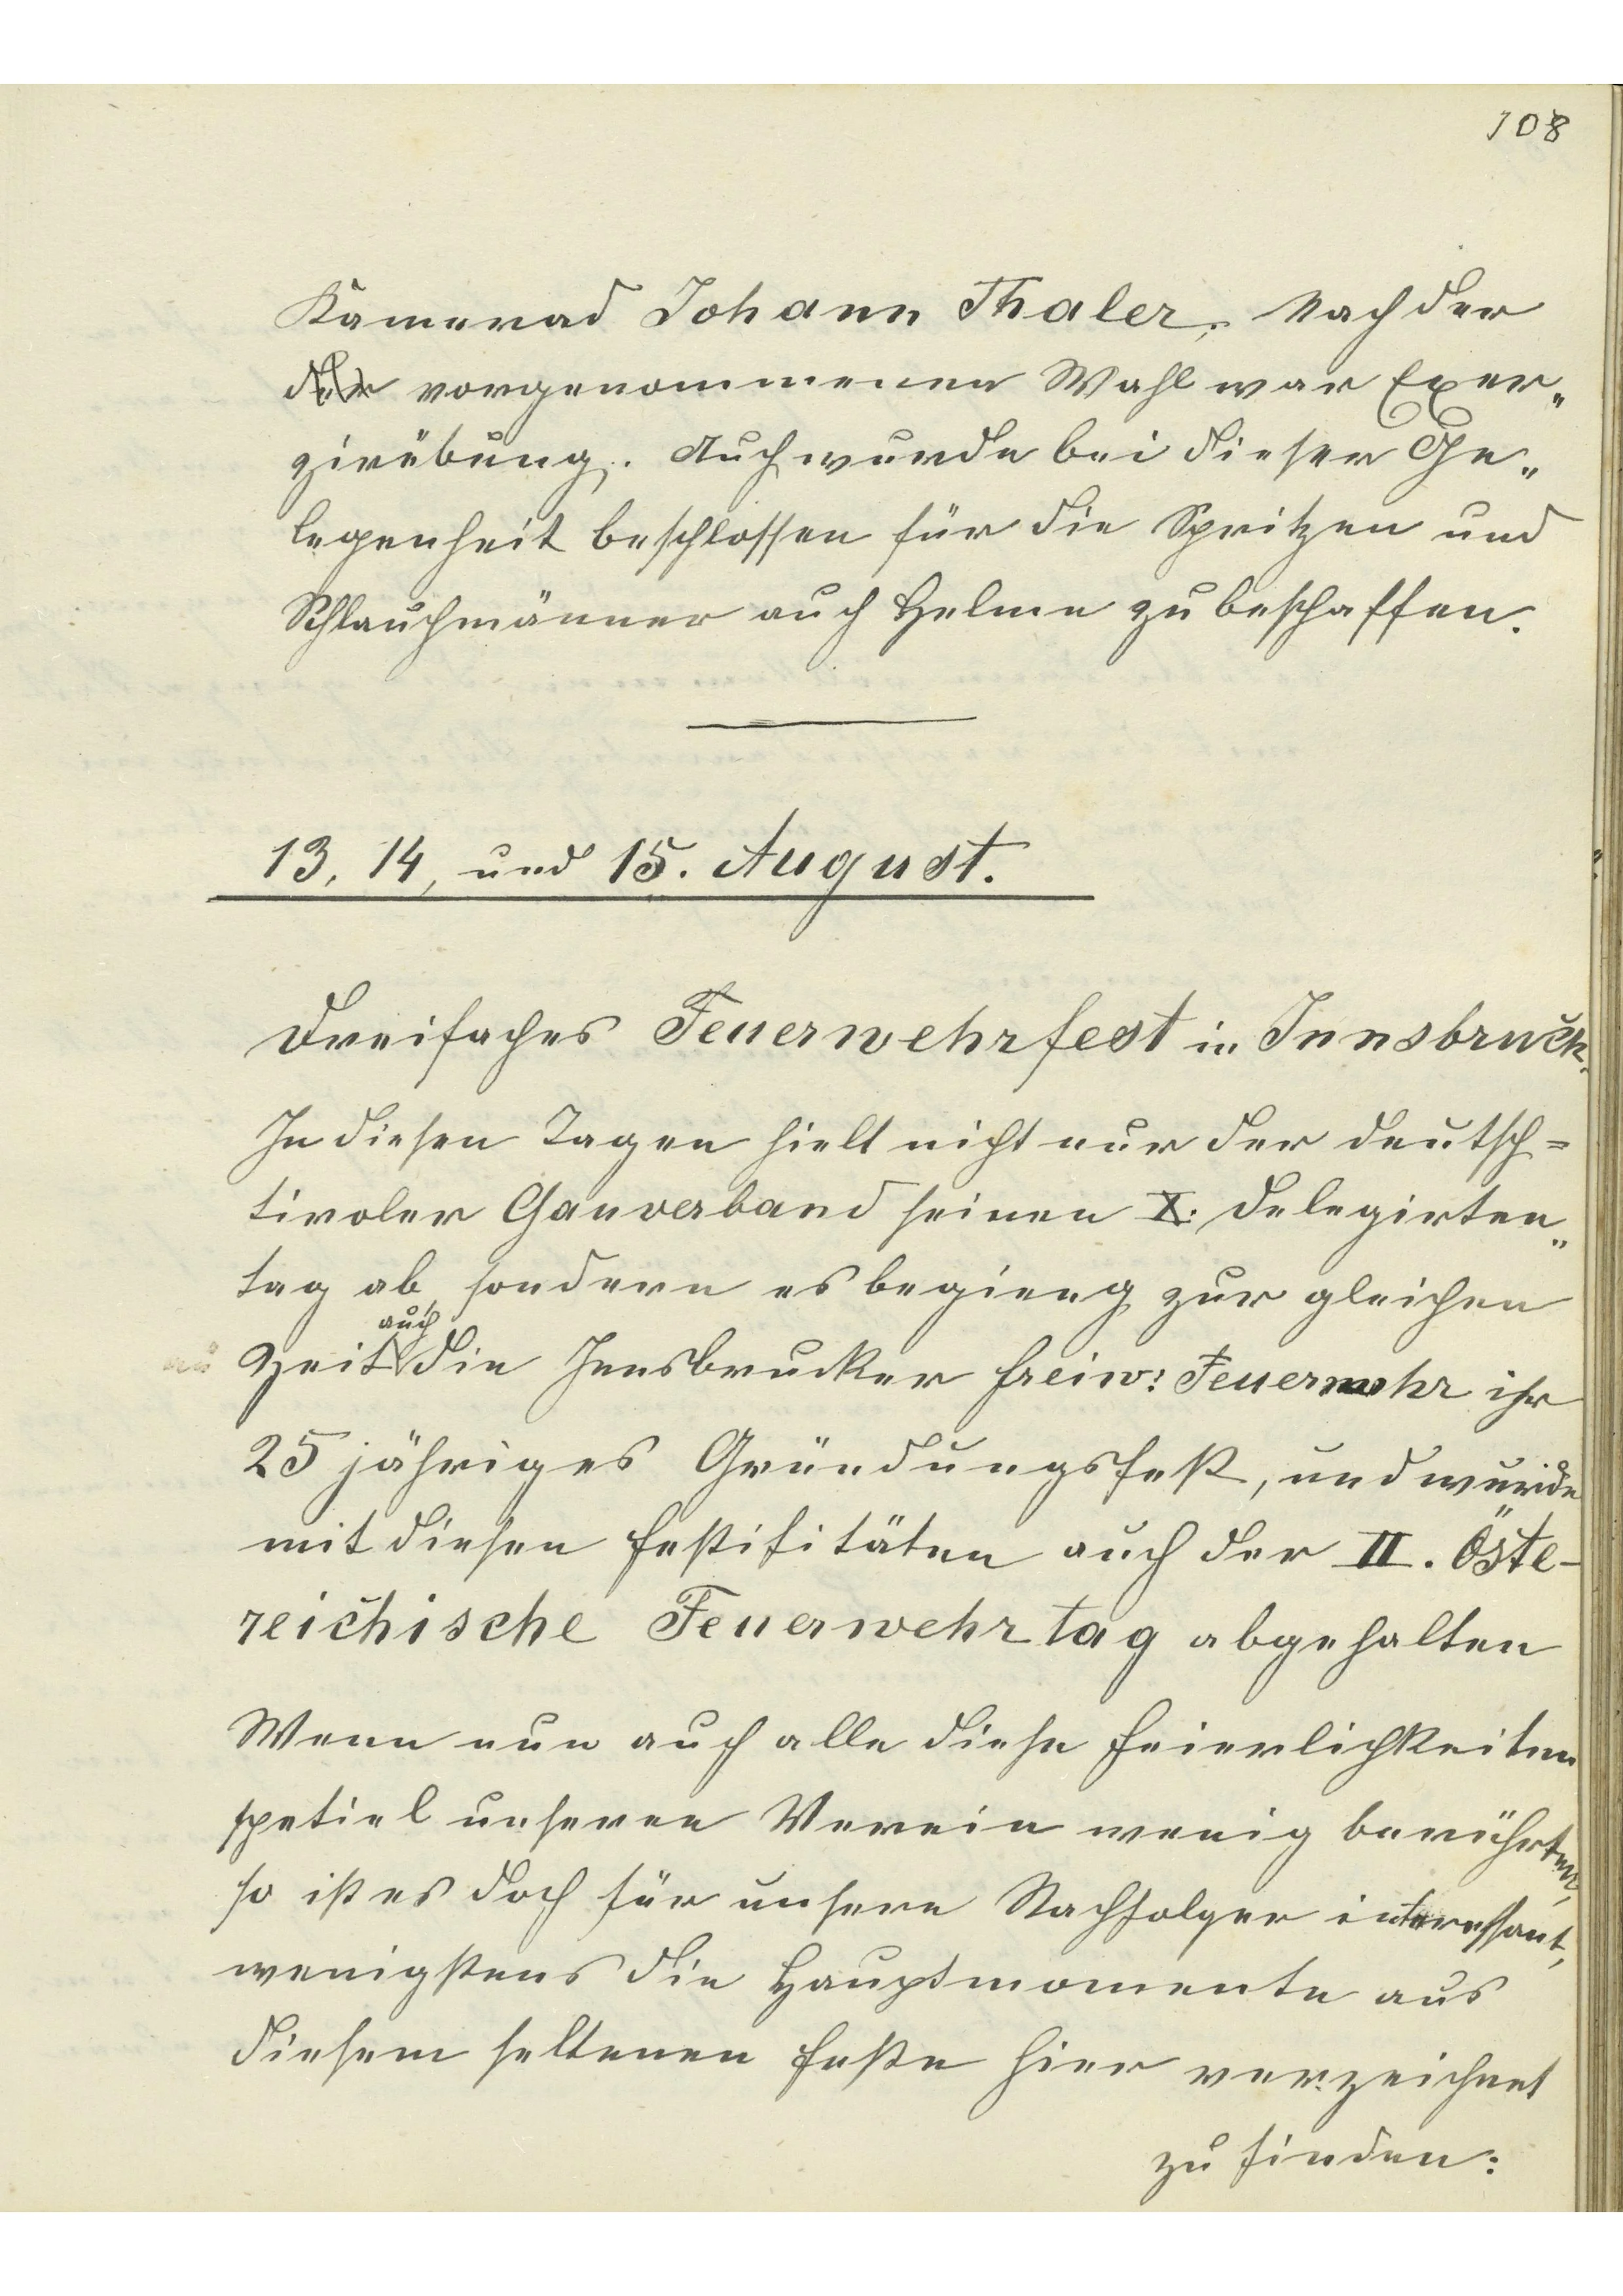 108
Kamerad Johann Thaler. Nach der
der vorgenommenen Wahl war Exer„
zirübung. Auch wurde bei dieser Ge„
legenheit beschlossen für die Spritzen und
Schlauchmänner auch Helme zu beschaffen.
13, 14, und 15. August.
Dreifaches Feuerwehrfest in Innsbruck.
In diesen Tagen hielt nicht nur der deutsch=
tiroler Gauverband seinen X. Delegirten„
tag ab, sondern es begieng zur gleichen
Zeit auch die Innsbrucker freiw: Feuerwehr ihr
25 jähriges Gründungsfest, und wurde
mit diesen Festifitäten auch der II. Öste-
reichische Feuerwehrtag abgehalten
Wenn nun auch alle diese Feierlichkeiten
spetiel unseren Verein wenig berührten,
so ist es doch für unsere Nachfolger interessant,
wenigstens die Hauptmomente aus
diesem seltenen Feste hier verzeichnet
zu finden: